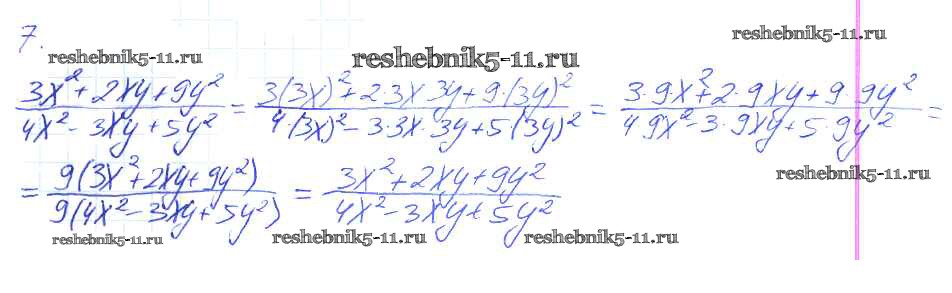 7.
reshebnik5-11.ru reshebnik5-11.ru reshebnik5-11.ru
(3x² + 2xy + 9y²)/(4x² - 3xy + 5y²) = (3(3x)² + 2·3x·3y + 9·(3y)²)/(4·(3x)² - 3·3x·3y + 5(3y)²) = (3·9·x² + 2·9xy + 9·9y²)/(4·9x² - 3·9xy + 5·9y²) =
reshebnik5-11.ru
= 9(3x² + 2xy + 9y²)/9(4x² - 3xy + 5y²) = (3x² + 2xy + 9y²)/(4x² - 3xy + 5y²)
reshebnik5-11.ru reshebnik5-11.ru reshebnik5-11.ru